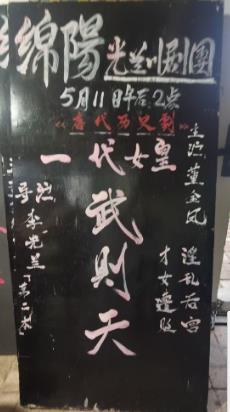 綿陽光兰川剧團
5月11日午后2点
《唐代历史剧》
一代女皇
武則天
主演董金凤
淫乱后宫
才女遭贬
导演
李光兰